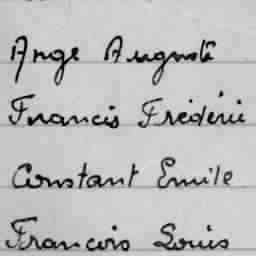 Ange Auguste
Francis Frédéric
Constant Emile
Francois Louis